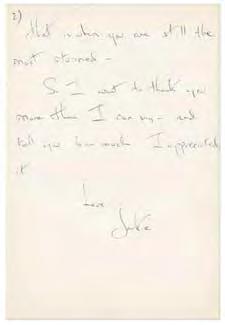 2)
that is when you are still the
most stunned –
So I want to thank you
more than I can say – and
tell you how much I appreciated
it
Love
Jackie